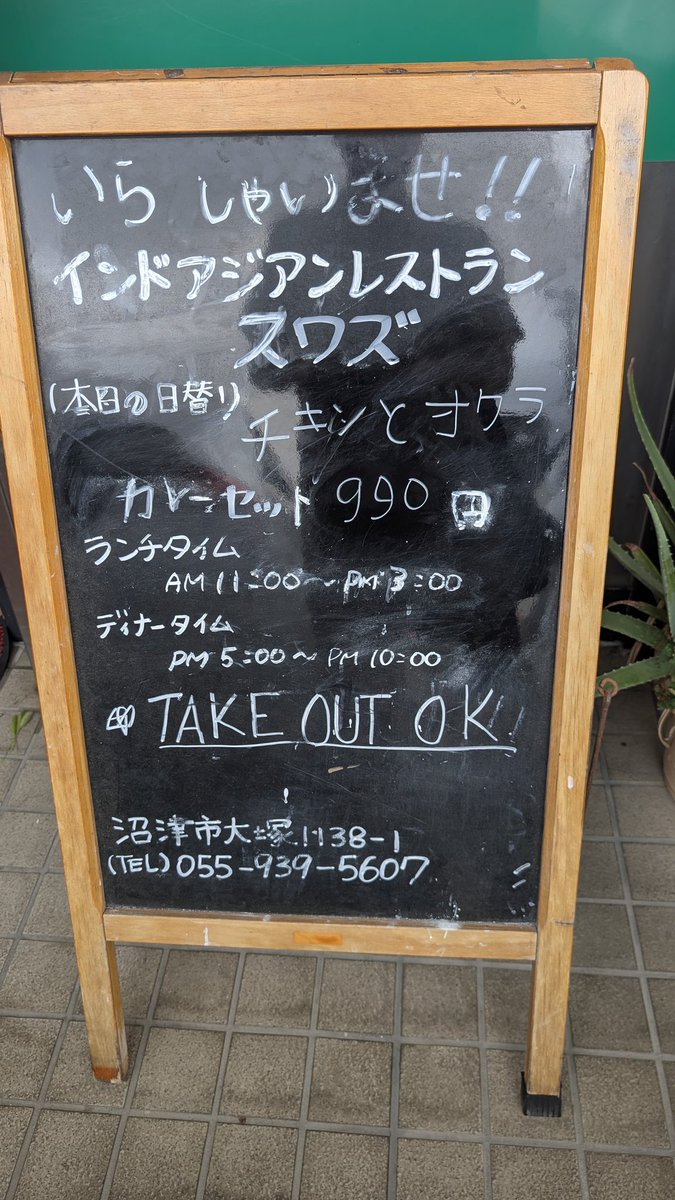 いらしゃいませ!!
インドアジアンレストラン
スワズ
(本日の日替り) チキンとオクラ
カレーセット 990円
ランチタイム
AM 11:00〜PM 3:00
ディナータイム
PM 5:00〜PM 10:00
TAKE OUT OK!!
沼津市大塚1138-1
(TEL) 055-939-5607